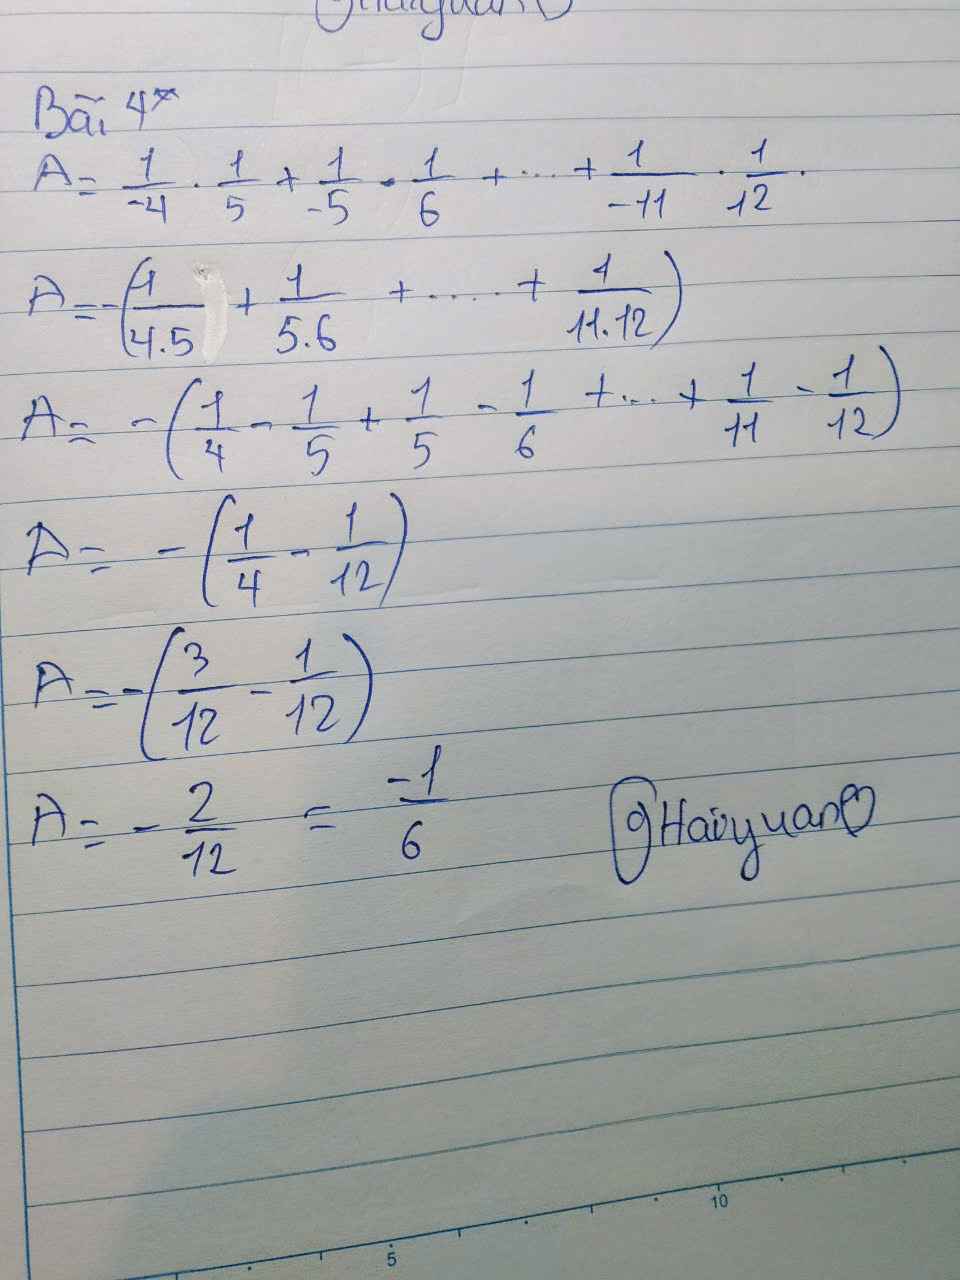 Haiyuan
Bài 4*
A = 1/-4 . 1/5 + 1/-5 . 1/6 + ... + 1/-11 . 1/12 .
A = -(1/4.5 + 1/5.6 + .... + 1/11.12)
A = -(1/4 - 1/5 + 1/5 - 1/6 + ... + 1/11 - 1/12)
A = -(1/4 - 1/12)
A = -(3/12 - 1/12)
A = - 2/12 = -1/6
Haiyuan
5 10